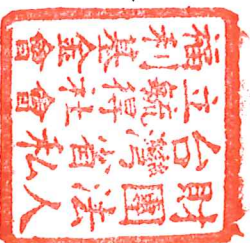 財團法人
台灣省私
立毓得社會
福利基金會